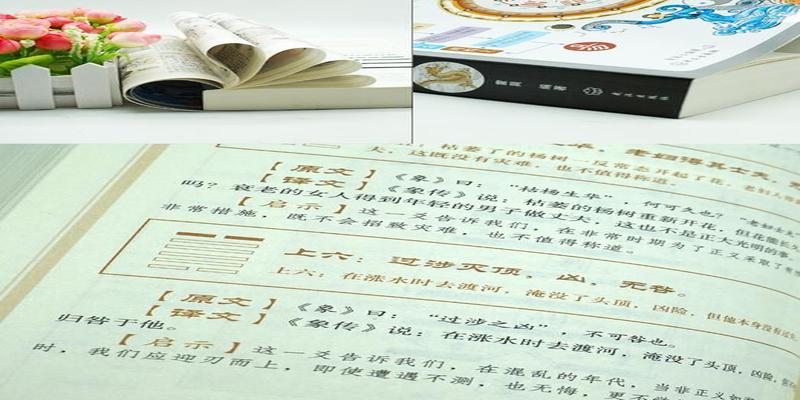 夫，这既没有灾难，也不值得称道。
【原文】《象》曰：“枯杨生华”，何可久也？
【译文】《象传》说：枯萎的杨树重新开花，但花能长久
吗？衰老的女人得到年轻的男子做丈夫，这也不是正大光明的事。
【启示】这一爻告诉我们，在非常时期为了正义采取了
非常措施，既不会招致灾难，也不值得称道。
上六：过涉灭顶，凶，无咎。
上六：在涨水时去渡河，淹没了头顶，凶险，但他本身没有
【原文】《象》曰：“过涉之凶”，不可咎也。
【译文】《象传》说：在涨水时去渡河，淹没了头顶，凶险，
归咎于他。
【启示】这一爻告诉我们，在混乱的年代，当非正义如
时，我们应迎刃而上，即使遭遇不测，也无悔，更不